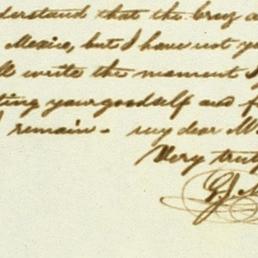 understand that the brig a
Mexico, but I have not yo
ll write the moment I
ting your goodself and f
I remain - my dear M
Very truly